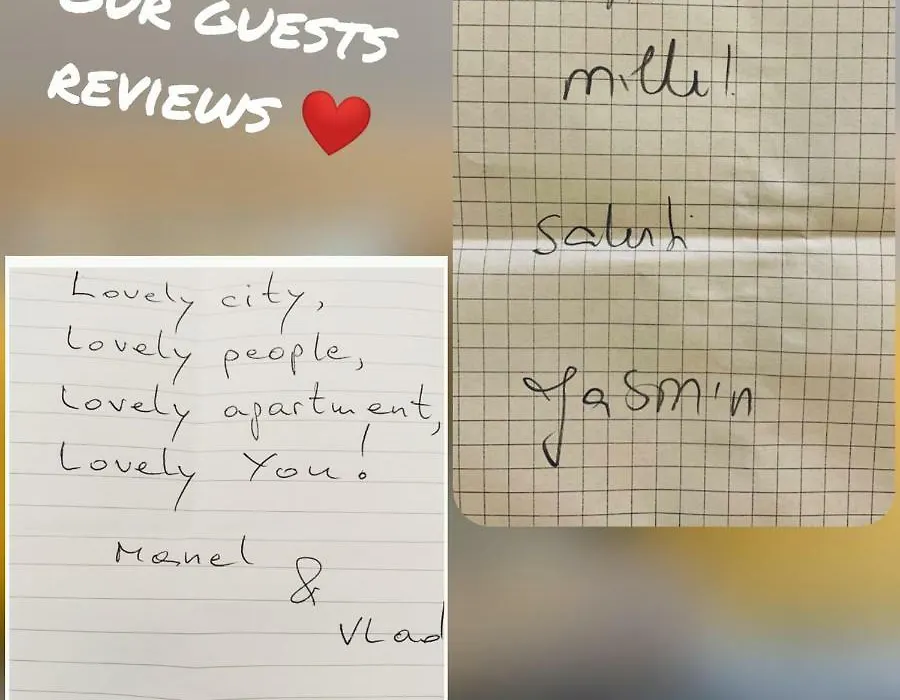 OUR GUESTS
REVIEWS ❤️
Lovely city,
Lovely people,
Lovely apartment,
Lovely You!
Manel
&
Vlad
mille!
Saluti
Yasmin